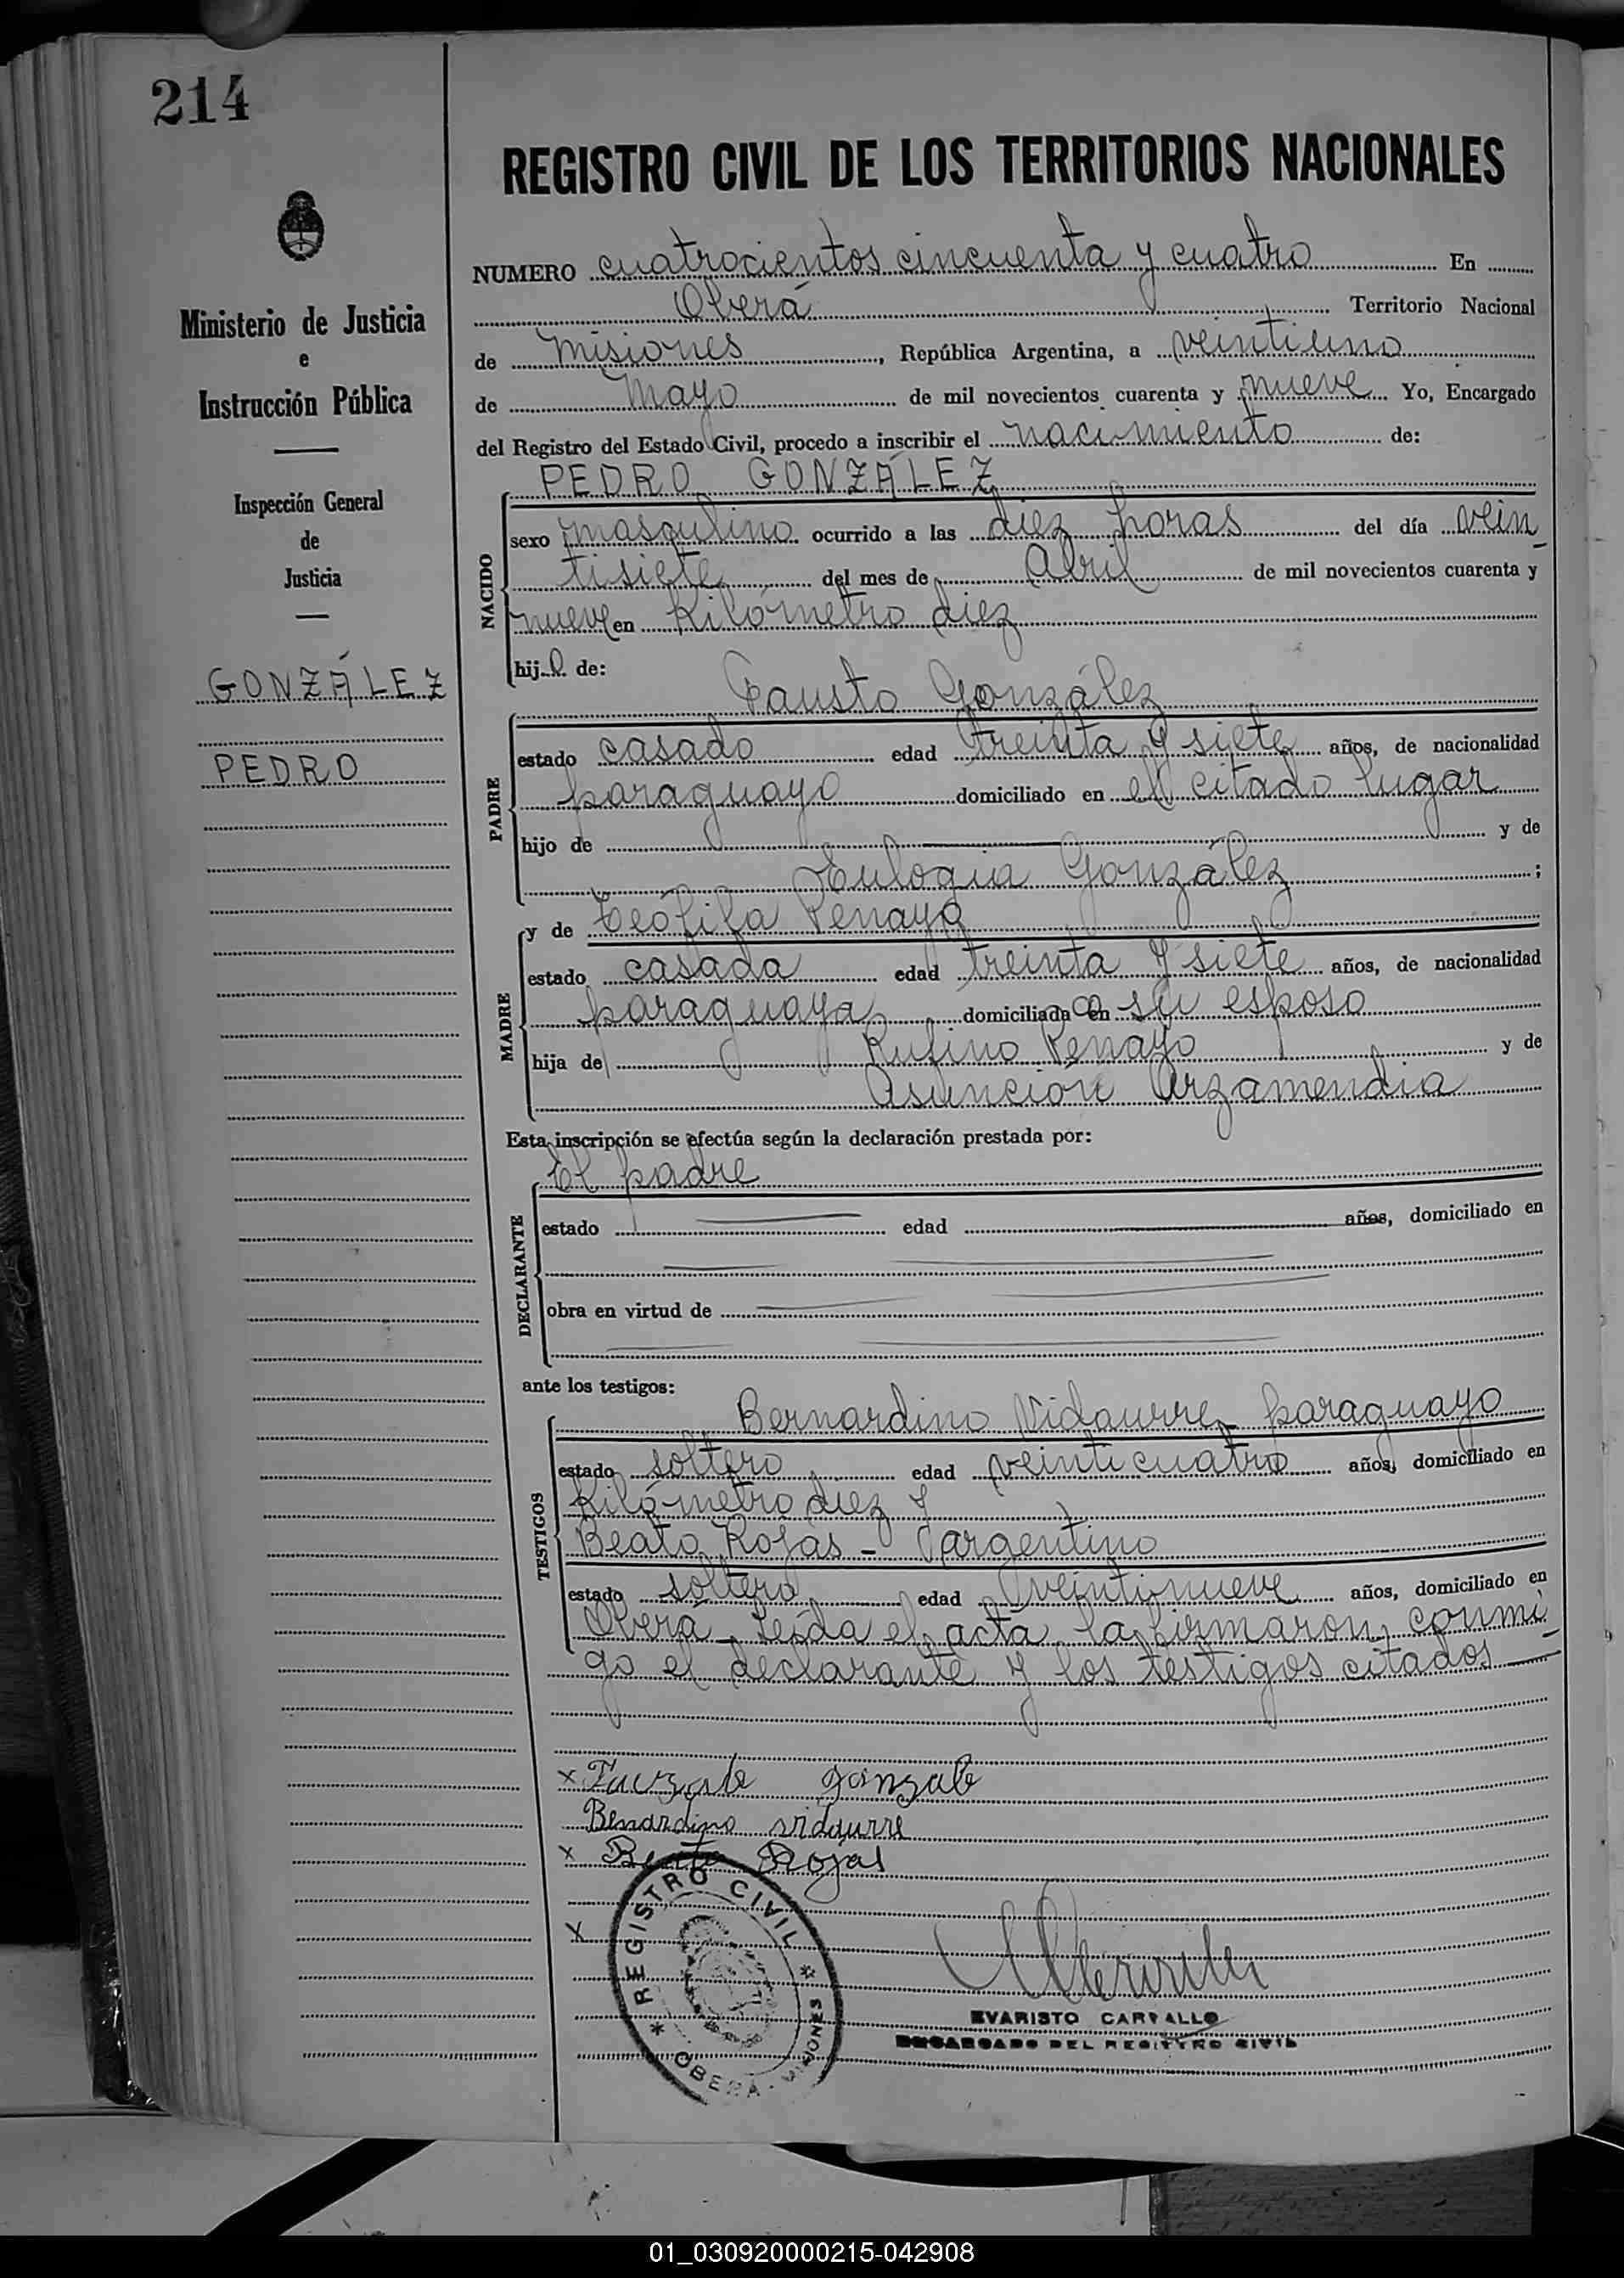 214
REGISTRO CIVIL DE LOS TERRITORIOS NACIONALES
Ministerio de Justicia
e
Instrucción Pública
Inspección General
de
Justicia
GONZÁLEZ
PEDRO
NUMERO cuatrocientos cincuenta y cuatro En
Oberá Territorio Nacional
de Misiones, República Argentina, a veintiuno
de Mayo de mil novecientos cuarenta y nueve. Yo, Encargado
del Registro del Estado Civil, procedo a inscribir el nacimiento de:
PEDRO GONZÁLEZ
NACIDO
sexo masculino ocurrido a las diez horas del día vein_
tisiete del mes de Abril de mil novecientos cuarenta y
nueve en Kilómetro diez
hijo de:
Fausto González
PADRE
estado casado edad treinta y siete años, de nacionalidad
paraguayo domiciliado en el citado lugar
hijo de y de
Eulogia González;
y de Teófila Penayo
MADRE
estado casada edad treinta y siete años, de nacionalidad
paraguaya domiciliada en su esposo
hija de Rufino Penayo y de
Asunción Arzamendia
Esta inscripción se efectúa según la declaración prestada por:
El padre
DECLARANTE
estado edad años, domiciliado en
obra en virtud de
ante los testigos:
Bernardino Vidaurre - paraguayo
TESTIGOS
estado soltero edad veinticuatro años, domiciliado en
Kilómetro diez y
Beato Rojas - argentino
estado soltero edad veintinueve años, domiciliado en
Oberá - Leída el acta, la firmaron conmi_
go el declarante y los testigos citados
x gonzale
Benardino vidaurre
x Beato Rojas
x
REGISTRO CIVIL * OBERA - MISIONES *
EVARISTO CARVALLO
ENCARGADO DEL REGISTRO CIVIL
01_030920000215-042908